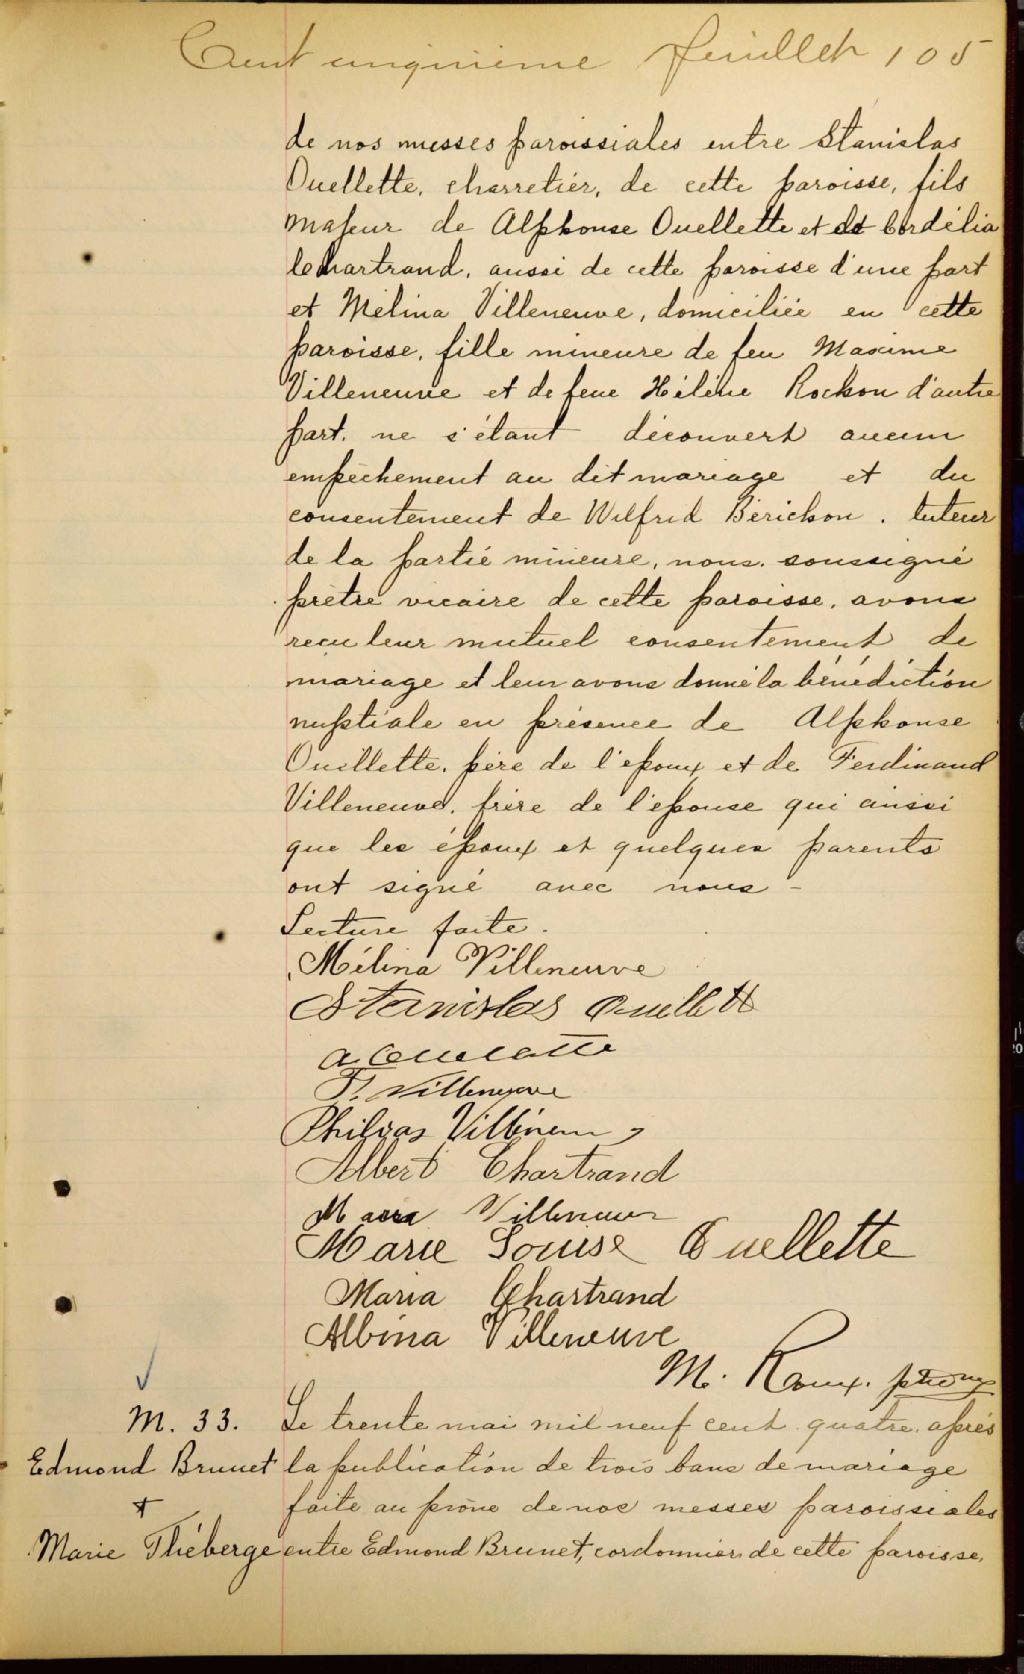 Cent cinquième feuillet 105
de nos messes paroissiales entre Stanislas
Ouellette, charretier, de cette paroisse, fils
majeur de Alphonse Ouellette et de Cordélia
Chartrand, aussi de cette paroisse d'une part
et Mélina Villeneuve, domiciliée en cette
paroisse, fille mineure de feu Maxime
Villeneuve et de feue Hélène Rochon d'autre
part. ne s'étant découvert aucun
empêchement au dit mariage et du
consentement de Wilfrid Bérichon. tuteur
de la partie mineure, nous. soussigné
prêtre vicaire de cette paroisse, avons
reçu leur mutuel consentement de
mariage et leur avons donné la bénédiction
nuptiale en présence de Alphonse
Ouellette, père de l'époux et de Ferdinand
Villeneuve, frère de l'épouse qui aussi
que les époux et quelques parents
ont signé avec nous -
Lecture faite.
Mélina Villeneuve
Stanislas Ouellett
F. Villeneuve
Philias Villeneuv
Albert Chartrand
Villeneuve
Marie Louise Ouellette
Maria Chartrand
Albina Villeneuve
M. Roux. ptre
M. 33. Le trente mai mil neuf cent quatre. après
Edmond Brunet la publication de trois bans de mariage
+ faite au prône de nos messes paroissiales
Marie Théberge entre Edmond Brunet, cordonnier, de cette paroisse,